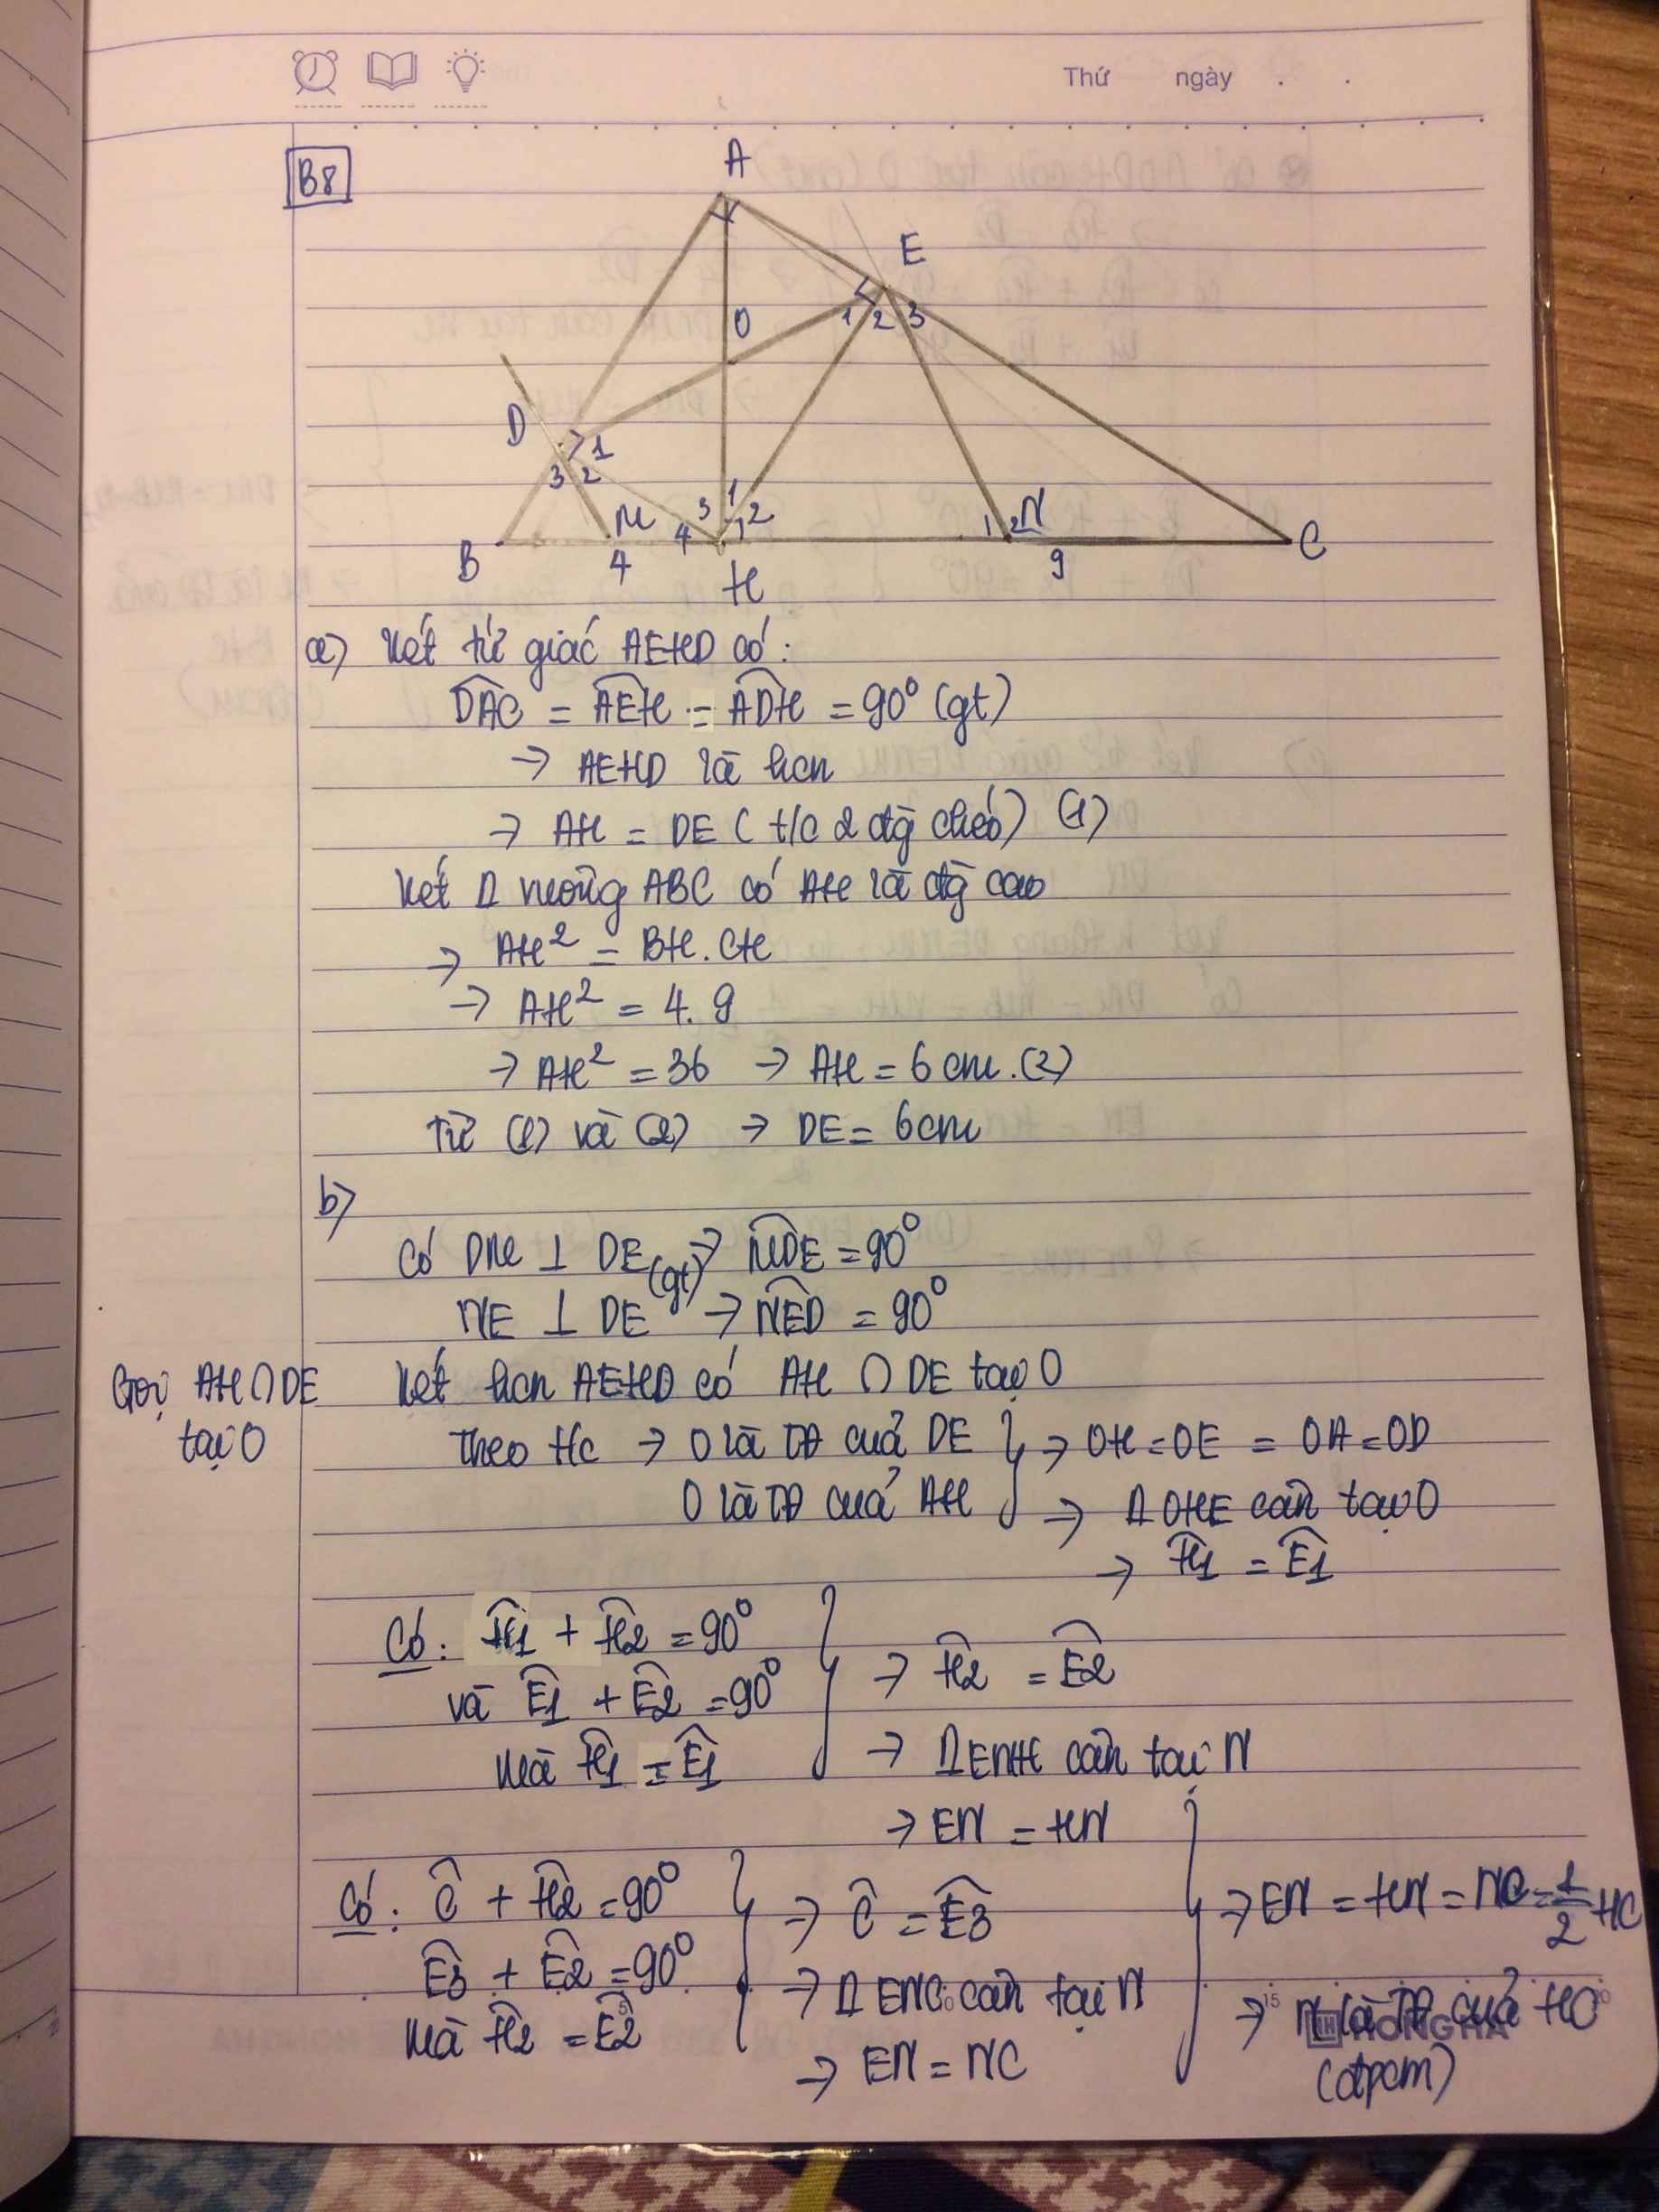 Thứ ngày . .
B8
A
E
O
1 2 3
D
1
3 2
M
3 1 2
4
1 2 N
B
4
H
9
C
a) Xét tứ giác AEHD có:
DAC = AEH = ADH = 90° (gt)
→ AEHD là hcn
→ AH = DE ( t/c 2 đg chéo) (1)
Xét Δ vuông ABC có AH là đg cao
→ AH² = BH. CH
→ AH² = 4. 9
→ AH² = 36 → AH = 6 cm. (2)
Từ (1) và (2) → DE = 6cm
b)
Có DM ⊥ DE (gt) → MDE = 90°
NE ⊥ DE → NED = 90°
Gọi AH ∩ DE
tại O
Xét hcn AEHD có AH ∩ DE tại O
Theo t/c → O là TĐ của DE } → OH = OE = OA = OD
O là TĐ của AH → Δ OHE cân tại O
→ H1 = E1
Có: H1 + H2 = 90°
và E1 + E2 = 90° → H2 = E2
mà H1 = E1 → Δ ENH cân tại N
→ EN = HN
Có: C + H2 = 90° → C = E3 → EN = HN = NC = 1/2 HC
E3 + E2 = 90° → Δ ENC cân tại N
mà H2 = E2 → EN = NC
→ N là TĐ của HC
(đpcm)
HONG HA